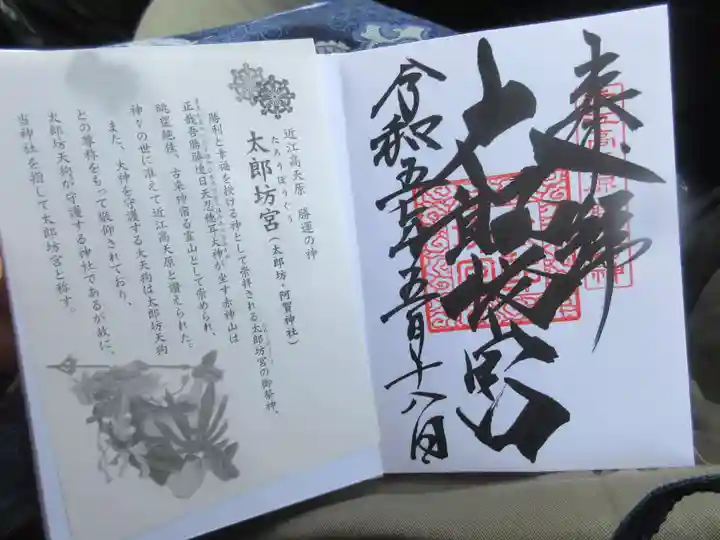 奉拝
太郎坊宮
令和五年五月十八日
近江高天原 勝運の神
たろうぼうぐう
太郎坊宮(太郎坊・阿賀神社)
勝利と幸福を授ける神として崇拝される太郎坊宮の御祭神、
正哉吾勝勝速日天忍穂耳大神が坐す赤神山は
眺望絶佳、古来神宿る霊山として崇められ、
神々の世に准えて近江高天原と讃えられた。
また、大神を守護する大天狗は太郎坊天狗
との尊称をもって敬仰されており、
太郎坊天狗が守護する神社であるが故に、
当神社を指して太郎坊宮と称す。